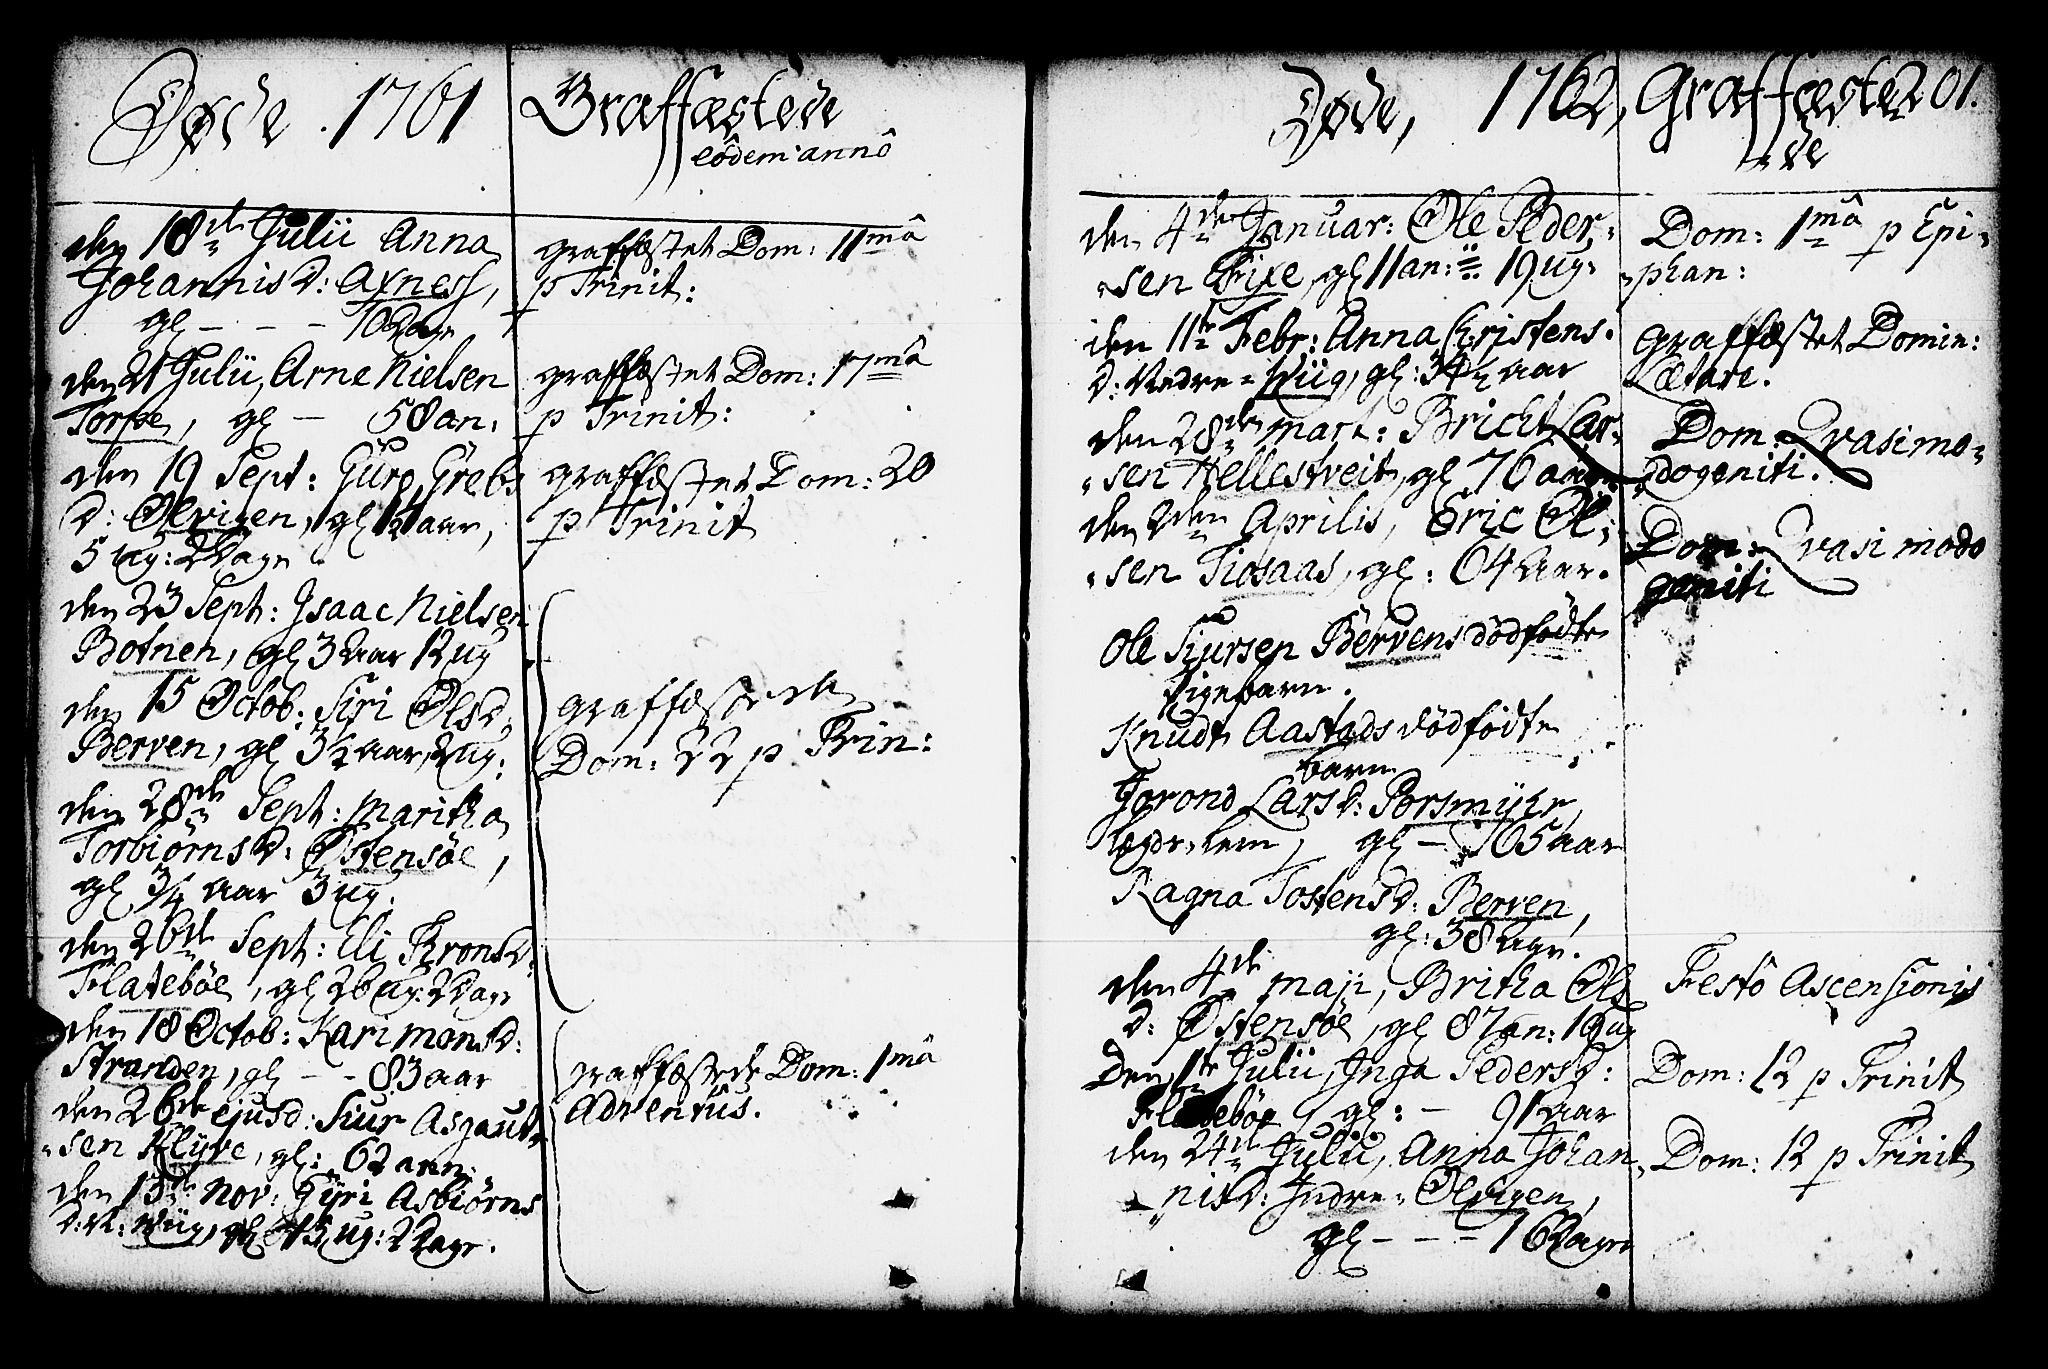 Døde . 1761
Graffæstede
eôdem annô
den 18de Julii Anna
Johannis d: Axness,
gl – – – 10 Dage
den 21 Julii, Arne Nielsen
Torpe, gl – 58 an:
den 19 Sept: Guro Grebs
d: Olvigen, gl aar,
5 ug: 2 Dage
den 23 Sept: Isaac Nielsen
Botnen, gl 3 aar 12 ug
den 15 Octob: Siri Olsd:
Berven, gl 3½ aar, 2 ug:
den 28de Sept: Maritha
Torbiørns d: Østensøe,
gl 3/4 aar 3 ug.
den 26de Sept: Eli Trons d:
Flatebøe, gl 26 ug: 2 Dage
den 18 Octob: Kari Monsd:
Stranden, gl – – 83 aar
den 26de ejusd: Siur Asgaut-
sen Klyve, gl: 62 ann:
den 13de Nov: Gyri Asbiørns
d: N: Wiig, gl 15 ug: 2 Dage.
graffæstet Dom: 11mâ
p Trinit:
graffæstet Dom: 17mâ
p Trinit:
graffæstet Dom: 20
p Trinit
graffæstede
Dom: 22 p Trin:
graffæstede Dom: 1mâ
Adventûs.
Døde, 1762,
Graffæste 201.
de
den 4de Januar: Ole Peder-
sen Fixe, gl 11 an: 19 ug:
den 11te Febr: Anna Christens.
d: Nedre-Wiig, gl: 34½ aar
den 28de Mart: Bricht Lar-
sen Hellestveit, gl 76 aar
den 2den Aprilis, Eric Ol-
sen Tiosaas, gl: 64 aar.
Ole Siursen Bervens dødfødte
Pigebarn.
Knudt Aastads dødfødte
barn
Jorond Larsd: Porsmyhr,
lægds-lem, gl – 65 aar
Ragna Tostensd: Berven,
gl: 38 uger.
den 4de Maji, Britha Ols
d: Østensøe, gl 87 an: 16 ug
Den 1te Julii, Inga Pedersd:
Flatebøe, gl: – 91 aar
den 24de Julii, Anna Johan-
nisd: Indre-Olvigen,
gl – – – 16 Dage
Dom: 1mâ p Epi-
phan:
graffæstet Domin:
Lætare.
Dom: Qvasimo-
dogeniti.
Dom: Qvasi modo
geniti
Festô Ascensionis
Dom: 12 p Trinit
Dom: 12 p Trinit